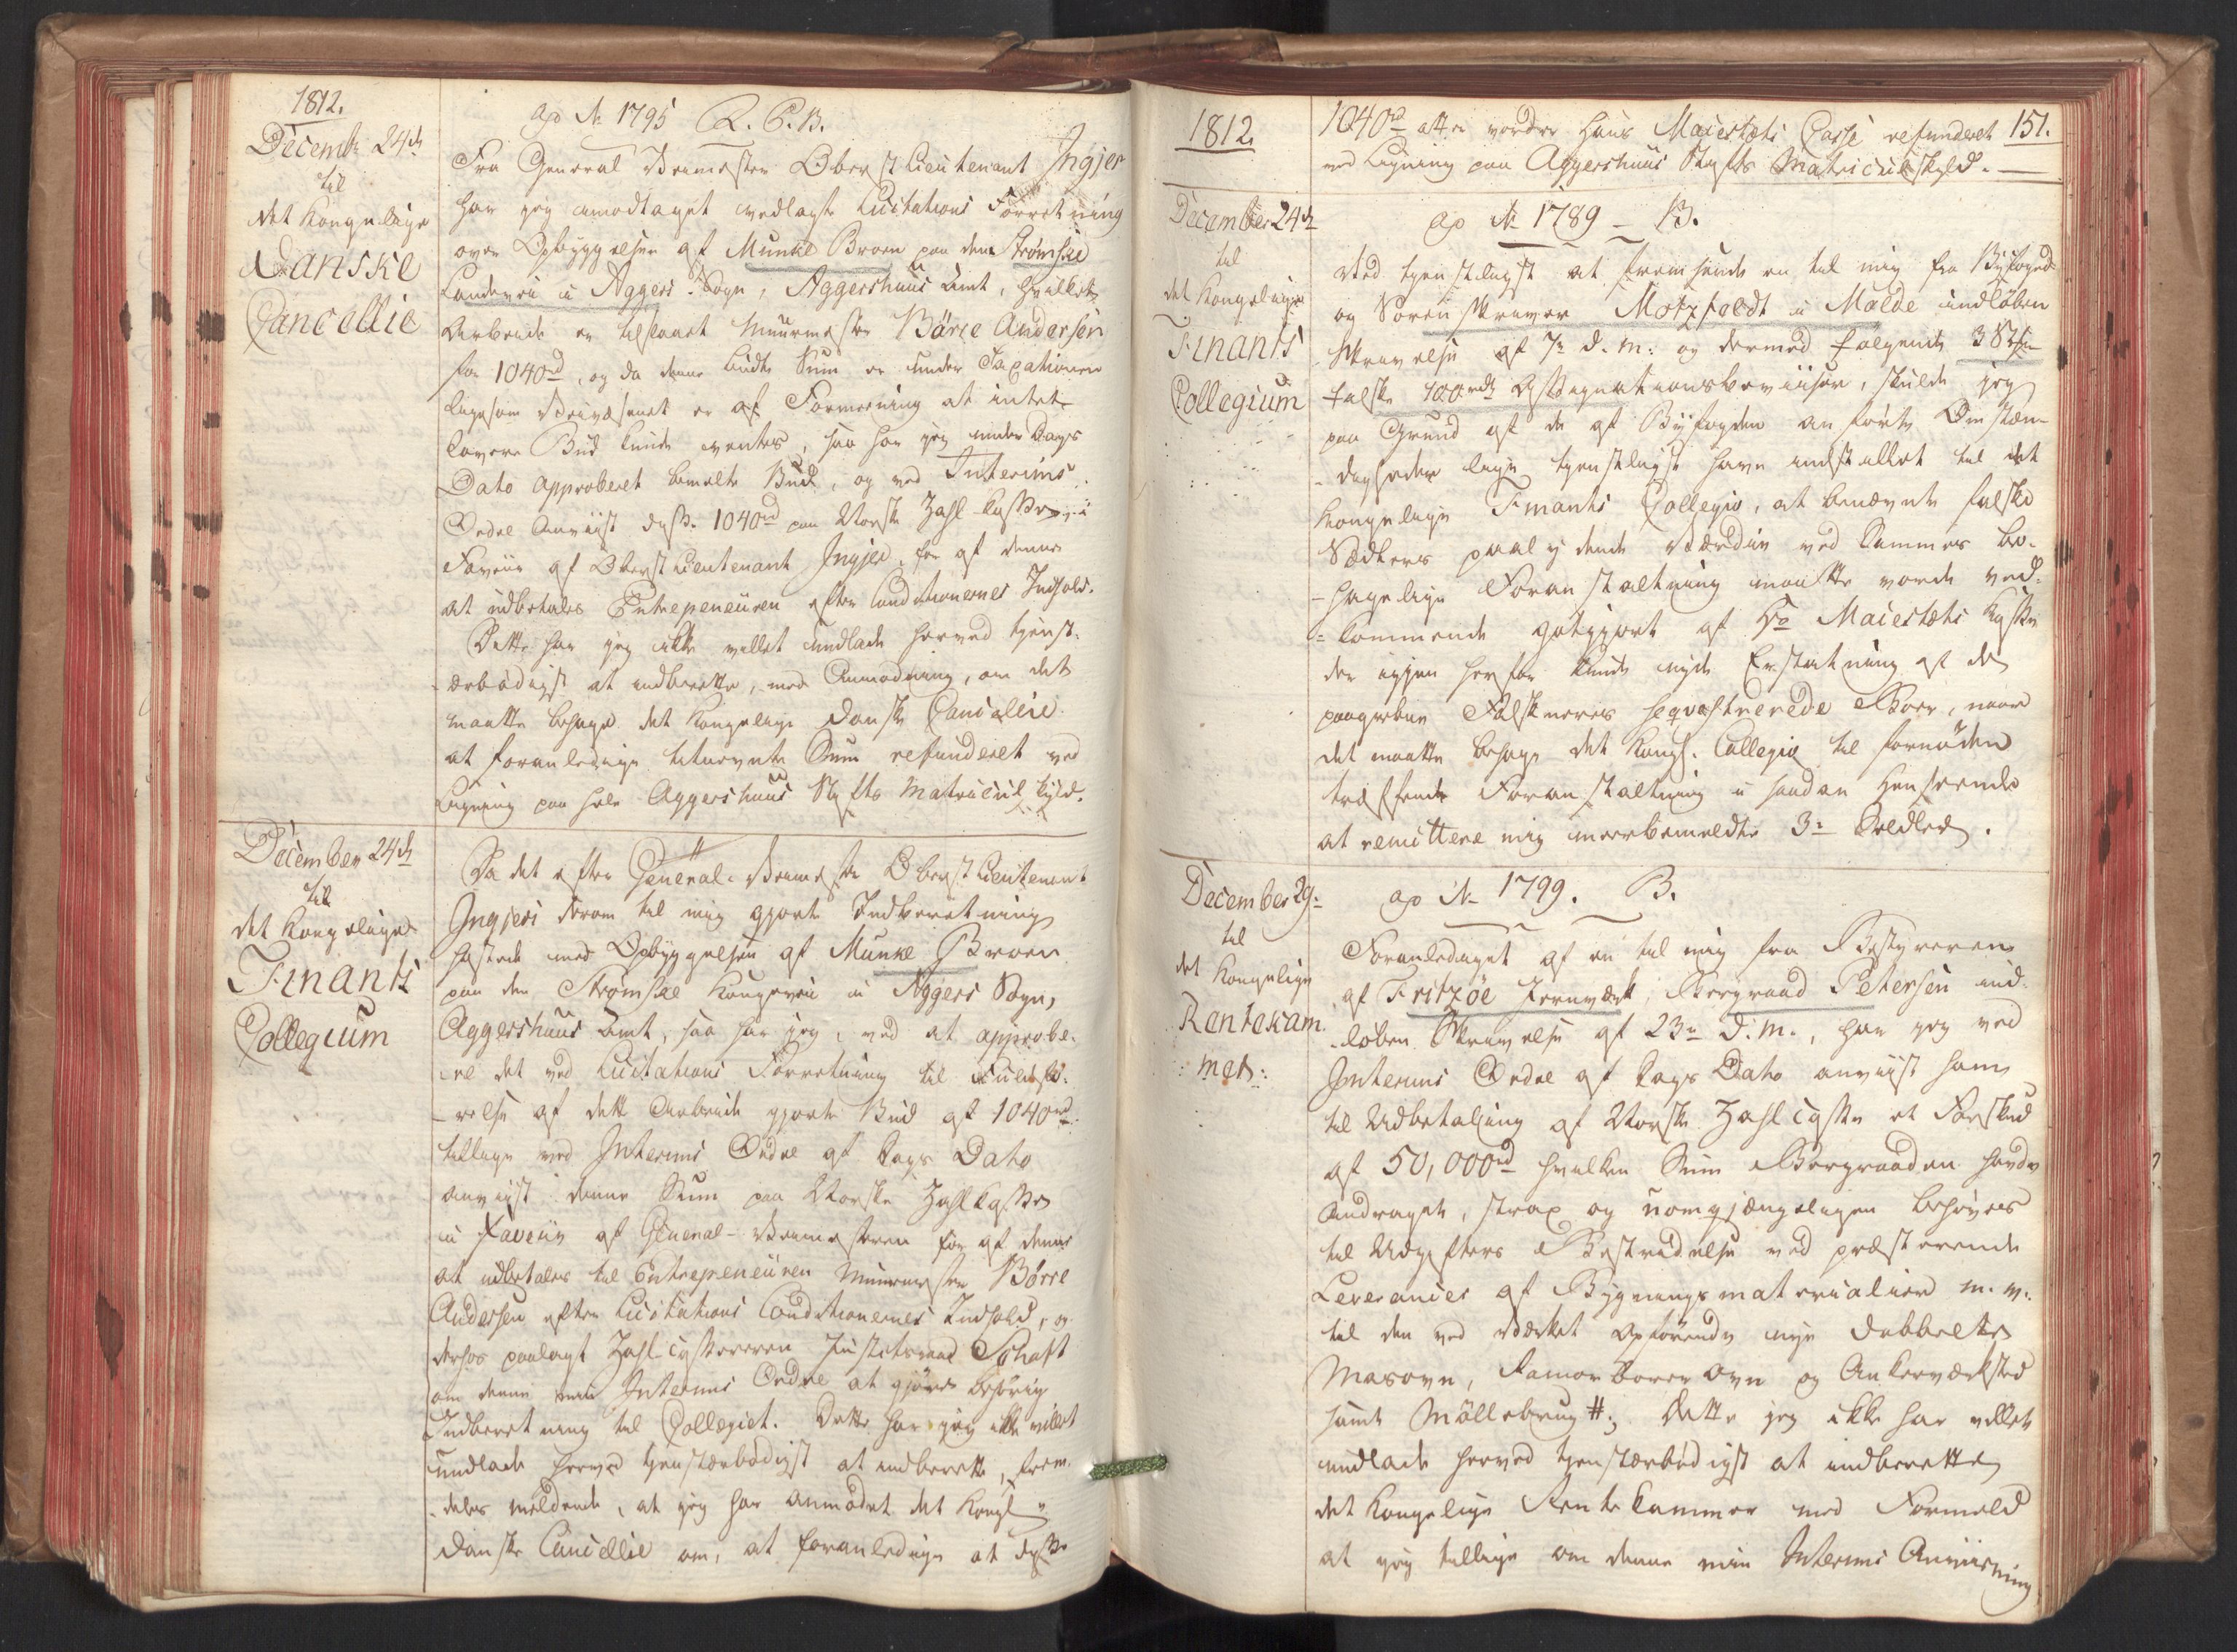 1812.
Decembr 24de
til
det Kongelige
Danske
Cancellie
ap № 1795 R. C. B.
Fra General Veimester Oberst Lieutenant Ingier
har jeg imodtaget vedlagte Licitations Forretning
over Opbyggelsen af Munke Broen paa den Strømske
Landevei i Aggers Sogn, Aggershuus Amt, hvilket
Arbeide er tilslaaet Muurmester Börre Andersen
for 1040rd, og da denne budte Sum er under Taxationen
ligesom Veivæsenet er af Formeening at intet
lavere Bud kunde ventes, saa har jeg under Dags
Dato approberet bemelte Bud, og ved Interims
Ordre anviist diss. 1040rd paa Norske Zahl-Kassen i
Faveur af Oberst Lieutenant Ingier, for af denne
at udbetales Entrepeneuren efter Conditionernes Indhold.
Dette har jeg ikke villet undlade herved tjenst-
ærbødigst at indberette, med Anmodning, om det
maatte behage det Kongelige Danske Cancellie
at foranledige bemeldte Sum refunderet ved
Ligning paa hele Aggershuus Stifts Matricul Skyld.
December 24de
til
det Kongelige
Finants
Collegium
Da det efter General-Veimester Oberst Lieutenant
Ingiers derom til mig gjorte Indberetning
hastede med Opbyggelsen af Munke Broen
paa den Strømske Kongevei i Aggers Sogn,
Aggershuus Amt, saa har jeg, ved at approbe-
re det ved Licitations Forretning til Udfö-
relse af dette Arbeide gjorte Bud af 1040rd
tillige ved Interims Ordre af Dags Dato
anviist denne Sum paa Norske Zahlkassen
i Faveur af General-Veimesteren for af denne
at udbetales til Entrepeneuren Muurmester Börre
Andersen efter Licitations Conditionernes Indhold, og
derhos paalagt Zahlcasserer Justitsraad Schaft
om denne min Interims Ordre at gjøre behørig
Indberetning til Collegiet. Dette har jeg ikke villet
undlade herved tjenstærbødigst at indberette, frem-
deles meldende, at jeg har anmodet det Kongl.
Danske Cancellie om, at foranledige at disse
1812.
151.
1040rd atter vorder Hans Maiestæts Casse refunderet
ved Ligning paa Aggershuus Stifts Matriculskyld.
December 24de
til
det Kongelige
Finants
Collegium
ap № 1789 - B.
Ved tjenstligst at fremsende en til mig fra Byfoged
og Sorenskriver Motzfeldt i Molde indløben
Skrivelse af 7de d. M: og dermed følgende 3 Stk.
falske 100rdl Assignationsbeviiser, skulde jeg
paa Grund af de af Byfogden anførte Omstæn-
digheder lige tjenstligst have indstillet til det
Kongelige Finants Collegio, at benævnte falske
Sedlers paalydende Værdie ved Sammes be-
hagelige Foranstaltning maatte vorde ved-
kommende godtgjort af Hs Maiestæts Kasse
der igjen herfor kunde nyde Erstatning af de
paagrebne Falskneres seqvestrerede Boer, naar
det maatte behage det Kongl. Collegie til fornøden
træffende Foranstaltning i saadan Henseende
at remittere mig meerbemeldte 3de Sedler.
December 29.
til
det Kongelige
Rentekam
mer:
ap № 1799. B.
Foranlediget af en til mig fra Bestyreren
af Fritzöe Jernværk, Bergraad Petersen ind-
løben Skrivelse af 23de d. M., har jeg ved
Interims Ordre af Dags Dato anviist ham
til Udbetaling af Norske Zahlcasse et Forskud
af 50,000rd hvilken Sum Bergraaden havde
andraget, strax og uomgjængeligen behøves
til Udgifters Bestridelse ved præsterende
Leverancer af Bygningsmaterialier m. v.
til den ved Værket opførende nye dobbelte
Masovn, Kanonborer Ovn og Ankerværksted
samt Möllebrug #; Dette jeg ikke har villet
undlade herved tjenstærbødigst at indberette
det Kongelige Rentekammer med Formeld
at jeg tillige om denne min Interims Anviisning